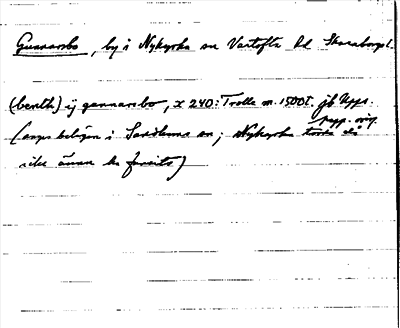 Gunnarsbo, by i Nykyrka sn Vartofta hd Skaraborgs l.
(benth) ij gunnarsbo, X 240: Trolle m. 1500t. jb Upps.
(anges belägen i Sandhems sn; Nykyrka torde då
icke ännu ha funnits)